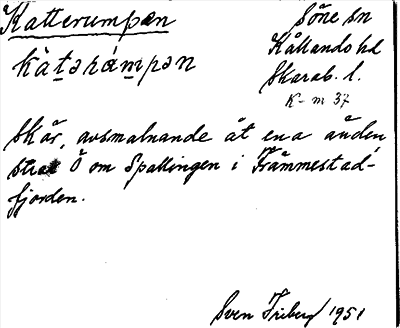 Katterumpan
Söne sn
kàt̠ərám̠pən
Kållands hd
Skarab. l.
K-m 37
Skär, avsmalnande åt ena änden
strax Ö om Spakingen i Främmestad-
fjorden.
Sven Friberg 1951